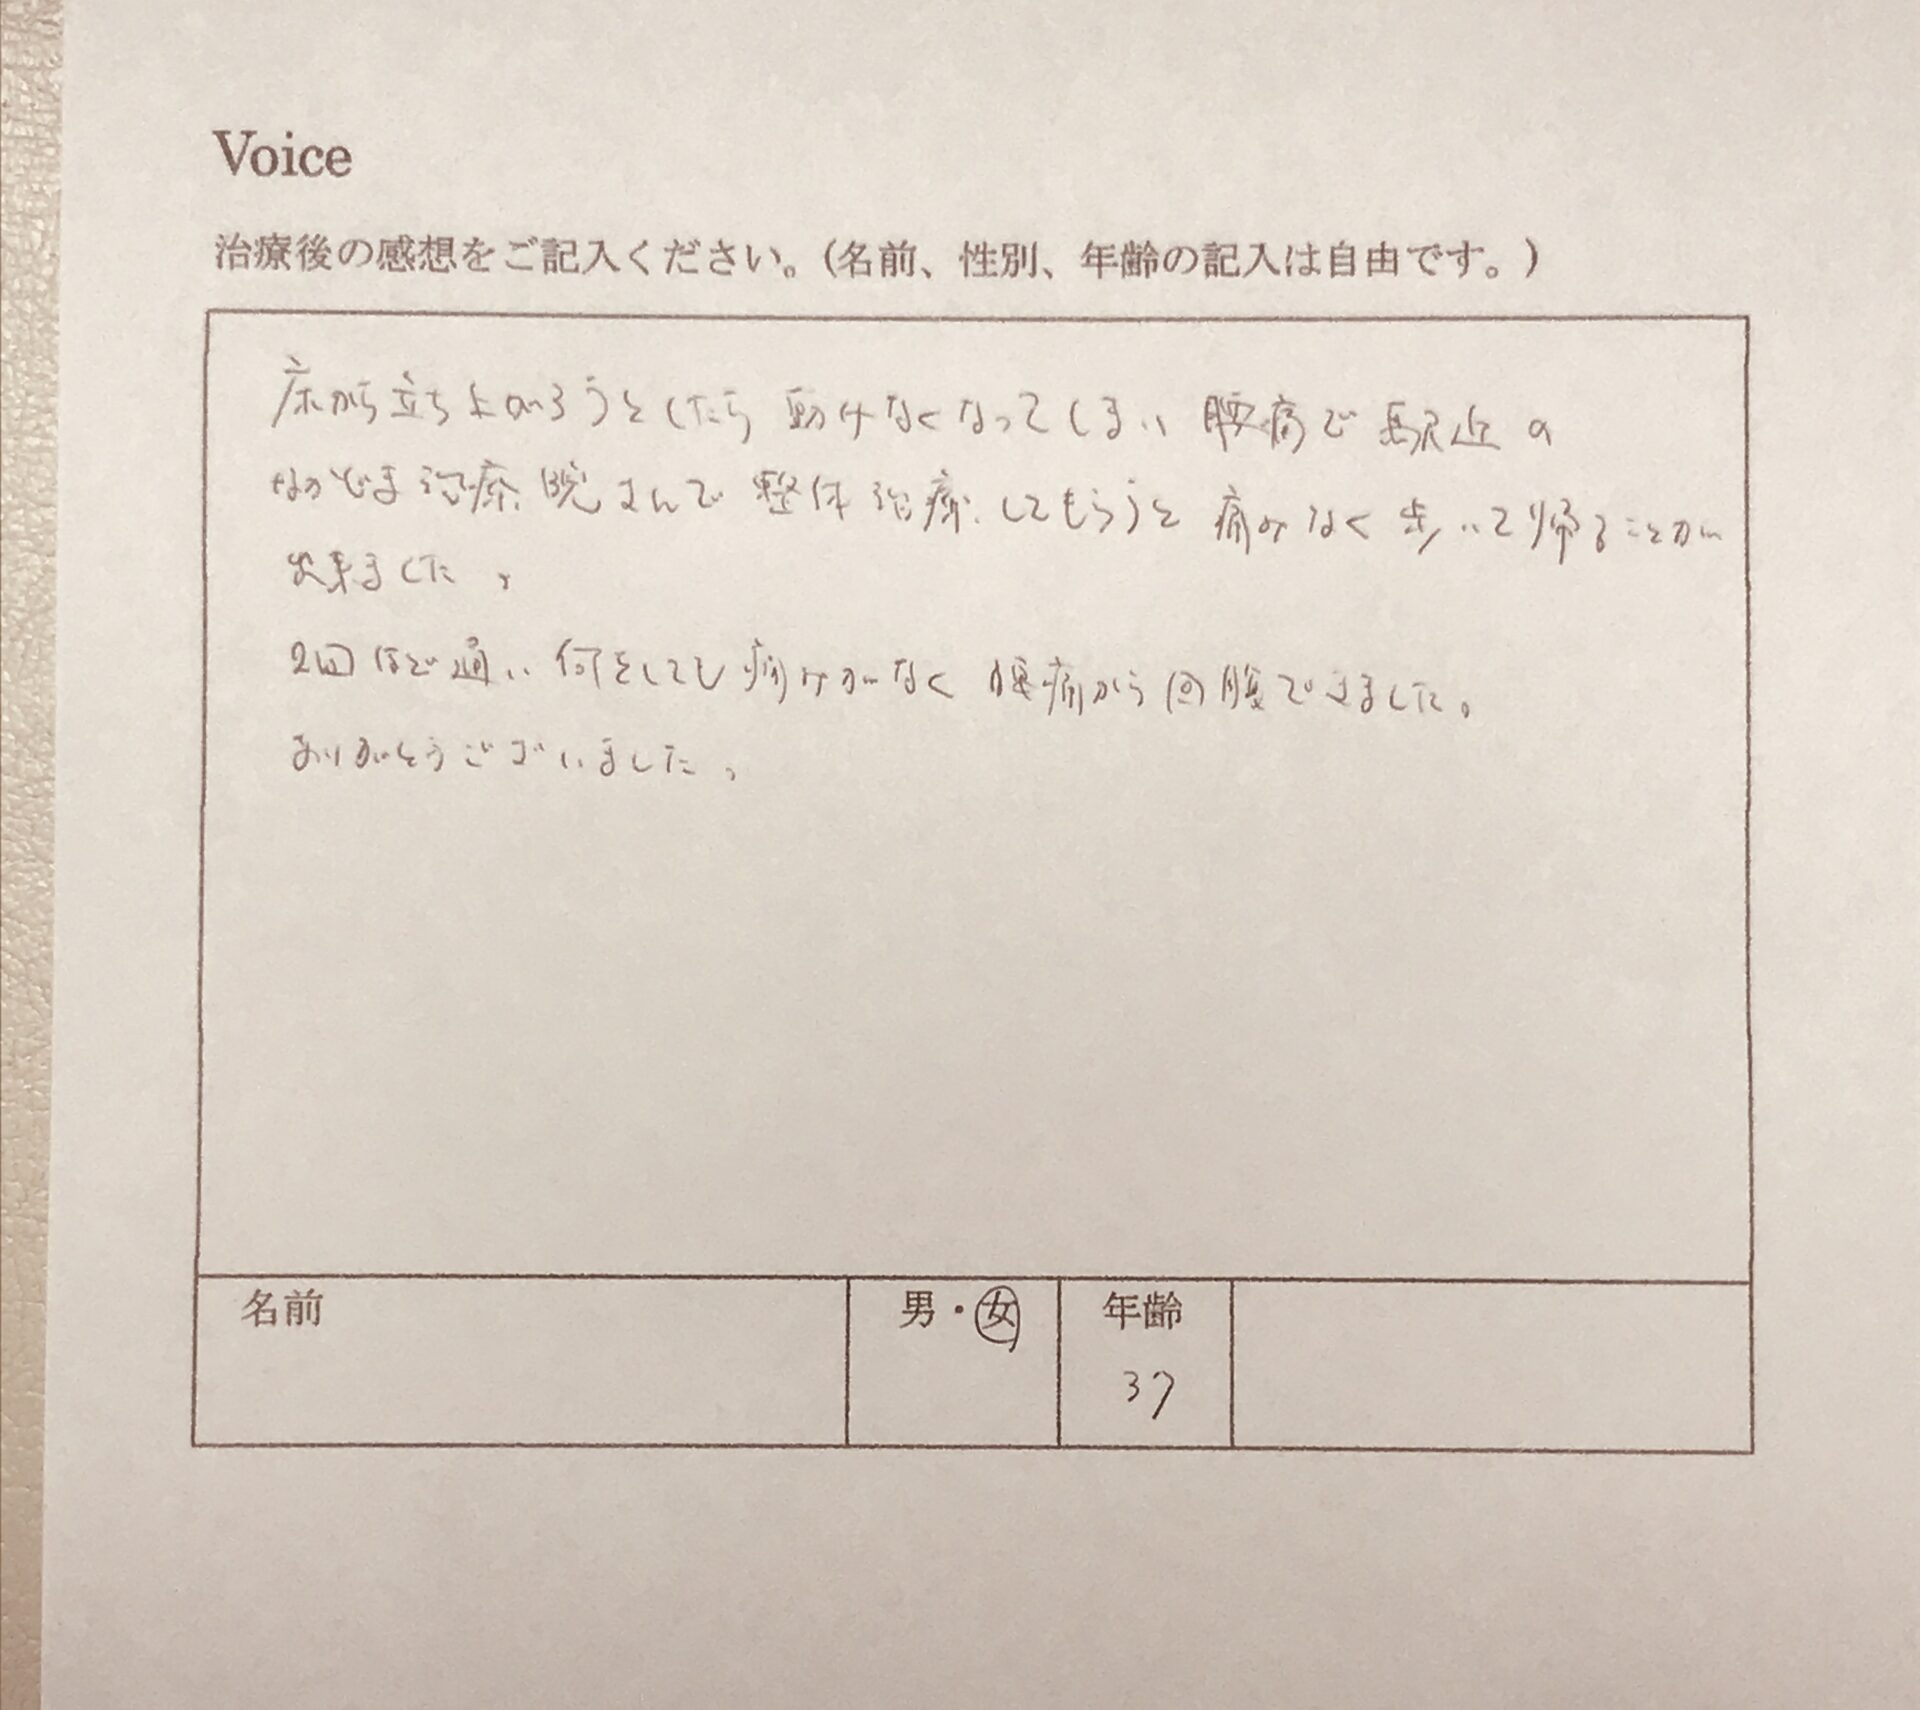 Voice
治療後の感想をご記入ください。（名前、性別、年齢の記入は自由です。）
床から立ち上がろうとしたら動けなくなってしまい腰痛で駅近の
治療院さんで整体治療してもらうと痛みなく歩いて帰ることが
出来ました。
2回ほど通い何をしても痛みがなく腰痛から回腹できました。
ありがとうございました。
名前 男・女 年齢
37